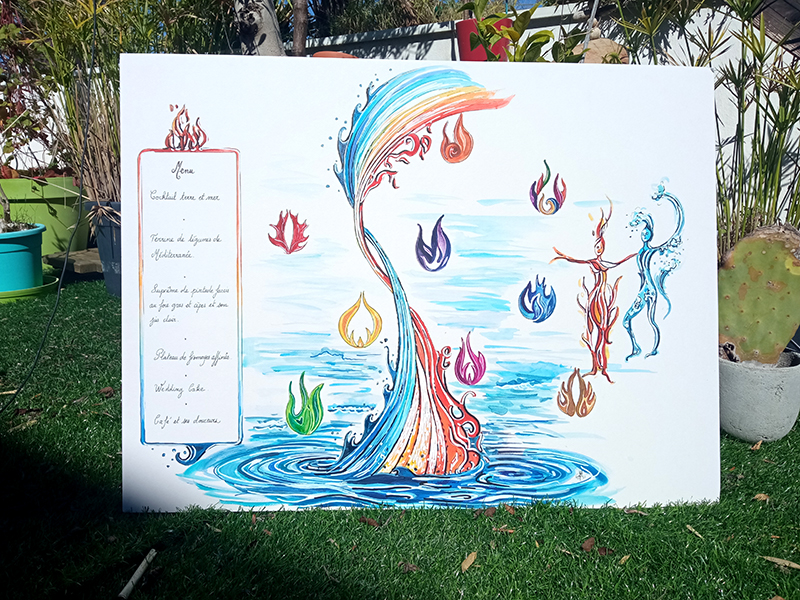 Menu
Cocktail terre et mer
Terrine de légumes de
Méditerranée
Suprême de pintade farcie
au foie gras et cèpes et son
jus clair.
Plateau de fromages affinés
Wedding Cake
Café et ses douceurs